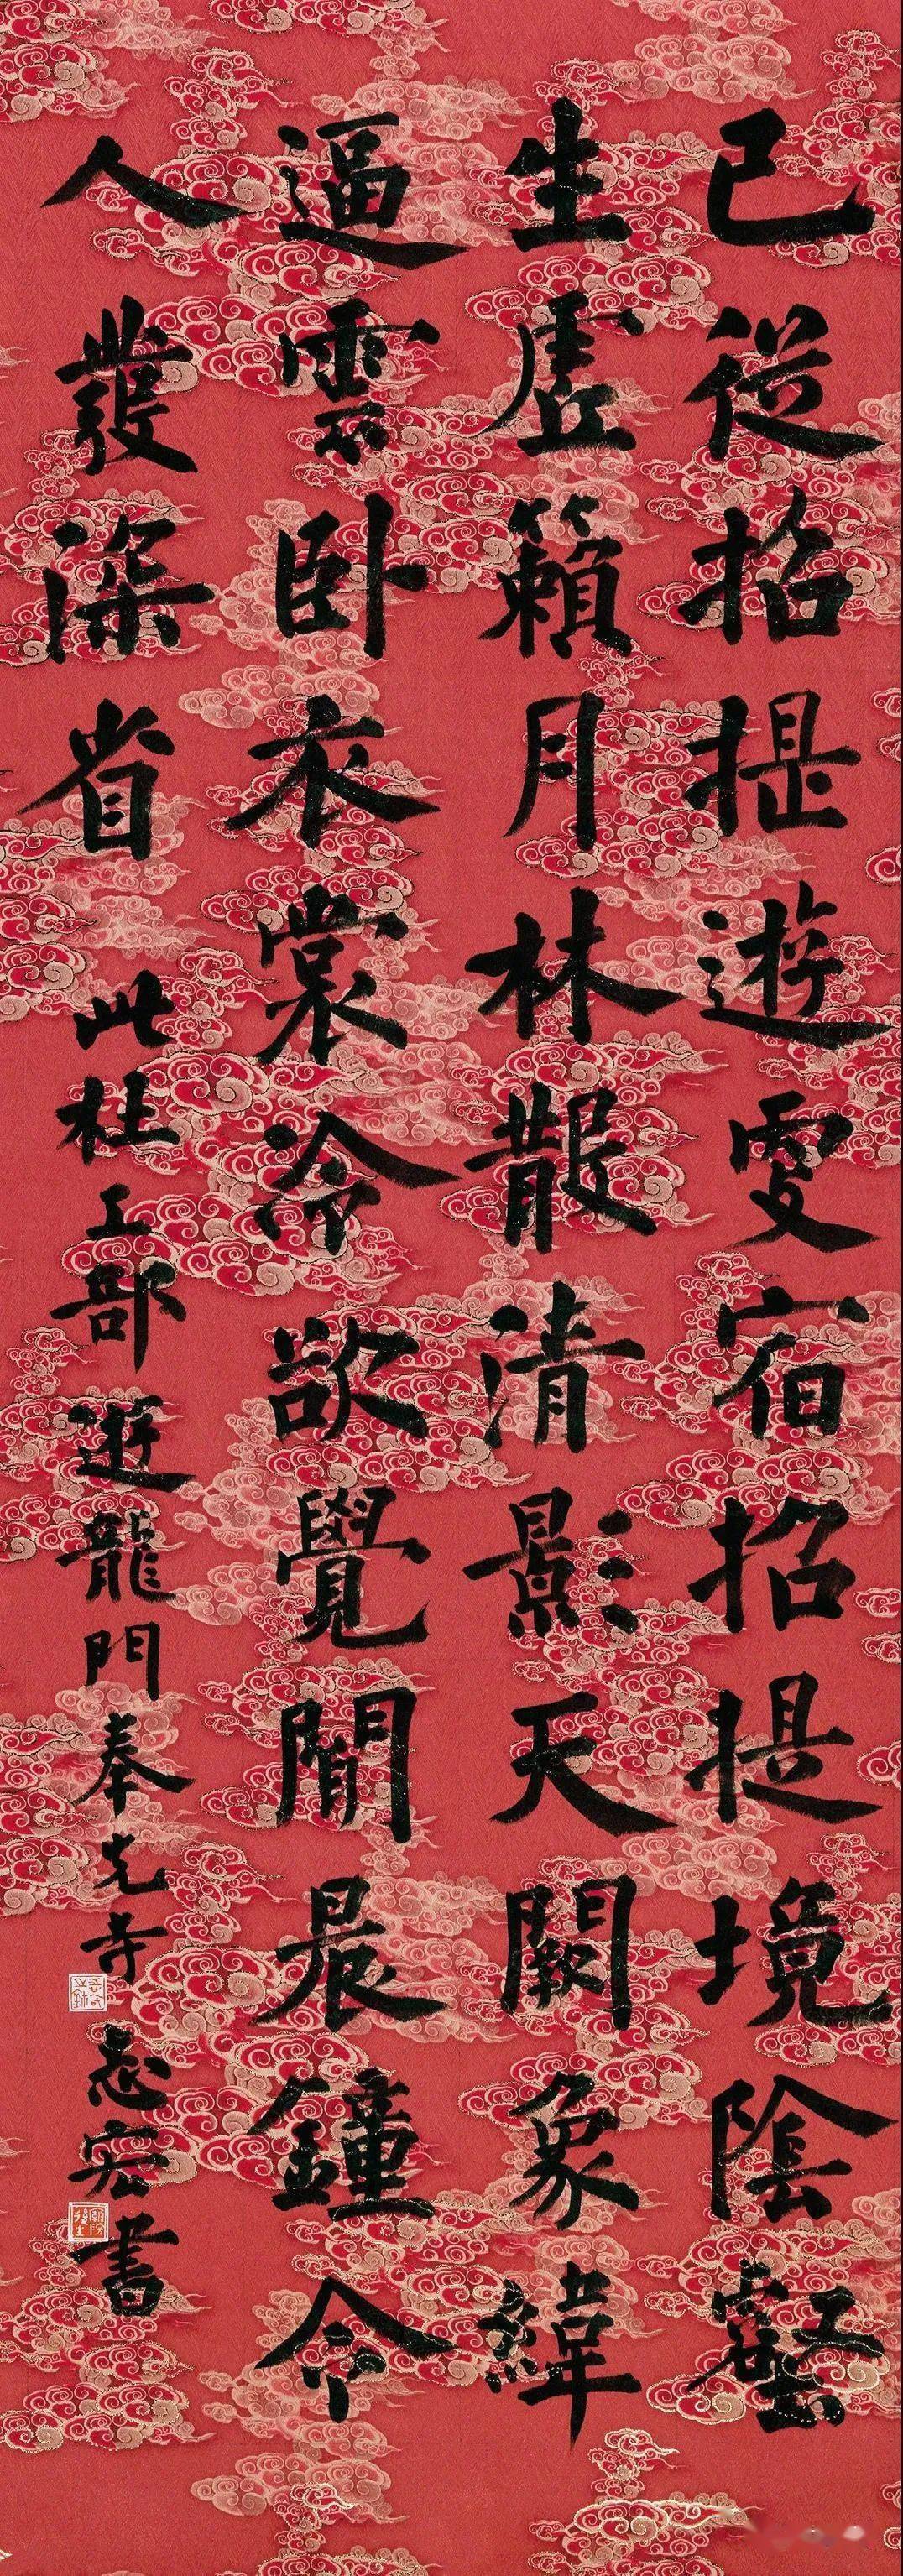 已從招提遊更宿招提境陰壑
生虛籟月林散清影天闕象緯
逼雲卧衣裳冷欲覺聞晨鐘令
人發深省 此杜工部遊龍門奉先寺 志宏書